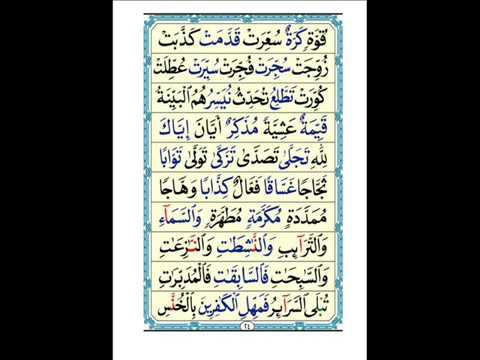 قُوَّةٍ كَرَّةٌ سُعِّرَتْ قَدَّمَتْ كَذَّبَتْ
زُوِّجَتْ سُجِّرَتْ فُجِّرَتْ سُيِّرَتْ عُطِّلَتْ
كُوِّرَتْ تَطَّلِعُ تُحَدِّثُ نُيَسِّرُ هُمُ الْبَيِّنَةُ
قَيِّمَةٌ عَشِيَّةً مُذَكِّرٌ أَيَّانَ إِيَّاكَ
لِلّٰهِ تَجَلّٰى تَصَدّٰى تَزَكّٰى تَوَلّٰى تَوَّابًا
ثَجَّاجًا غَسَّاقًا فَعَّالٌ كِذَّابًا وَهَّاجًا
مُمَدَّدَةٍ مُكَرَّمَةٍ مُطَهَّرَةٍ وَالسَّمَآءِ
وَالتَّرَآئِبِ وَالنّٰشِطٰتِ وَالنّٰزِعٰتِ
وَالسّٰبِحٰتِ فَالسّٰبِقٰتِ فَالْمُدَبِّرٰتِ
تُبْلَى السَّرَآئِرُ فَمَهِّلِ الْكٰفِرِينَ بِالْخُنَّسِ
١٤